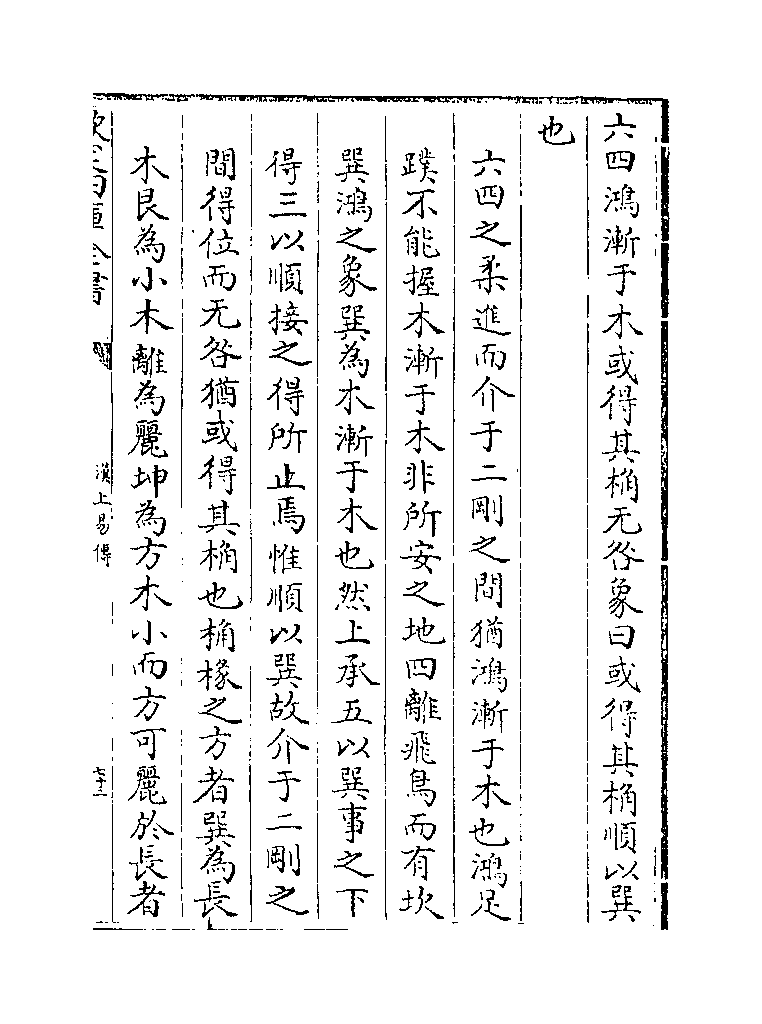 六四鴻漸于木或得其桷无咎象曰或得其桷順以巽
也
六四之柔進而介于二剛之間猶鴻漸于木也鴻足
蹼不能握木漸于木非所安之地四離飛鳥而有坎
巽鴻之象巽為木漸于木也然上承五以巽事之下
得三以順接之得所止焉惟順以巽故介于二剛之
間得位而无咎猶或得其桷也桷椽之方者巽為長
木艮為小木離為麗坤為方木小而方可麗於長者
欽定四庫全書
漢上易傳